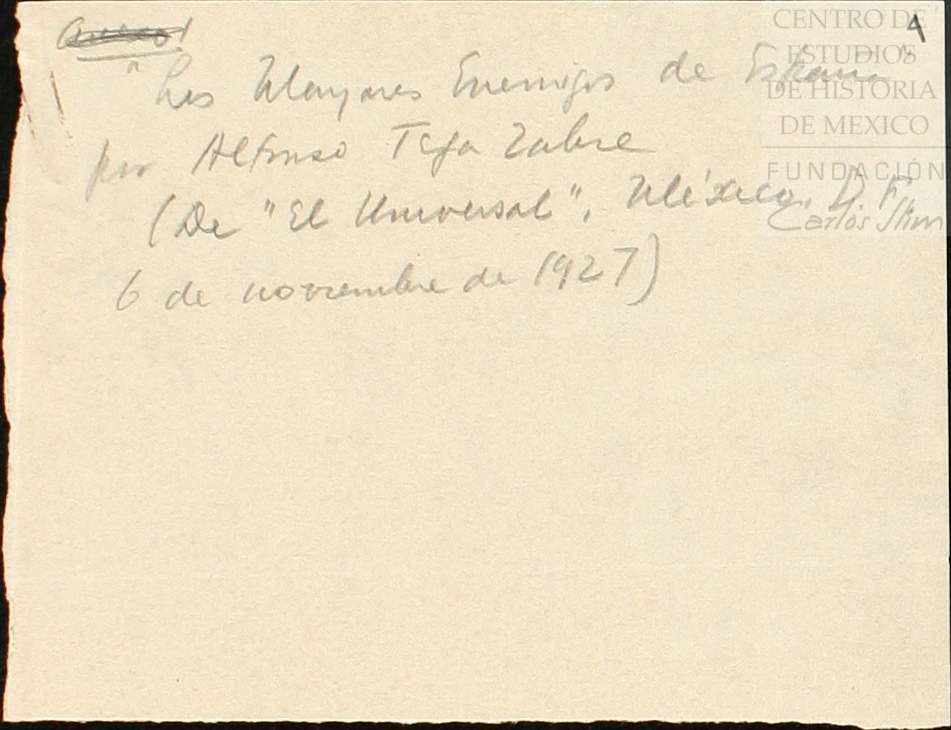 4
"Los Mayores Enemigos de España"
por Alfonso Teja Zabre
(De "El Universal", México, D. F.
6 de noviembre de 1927)
CENTRO DE
ESTUDIOS
DE HISTORIA
DE MEXICO
FUNDACIÓN
Carlos Slim